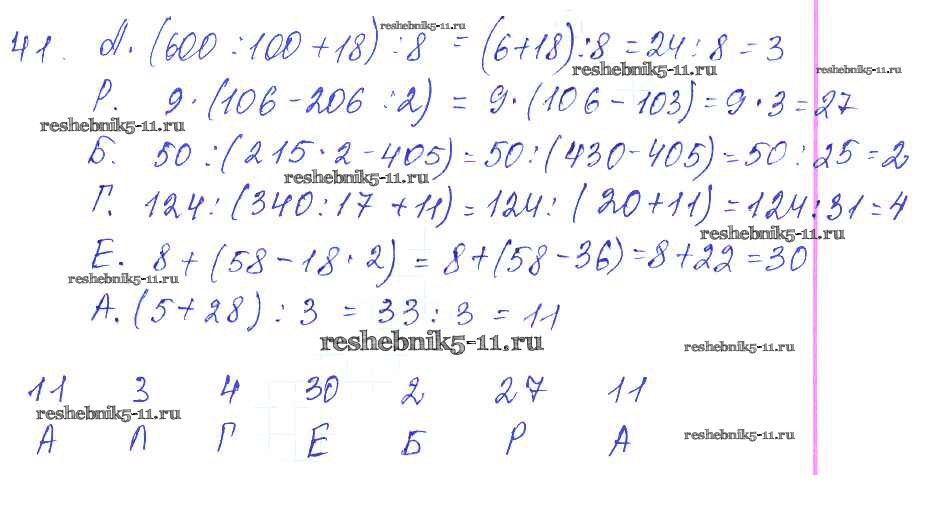 reshebnik5-11.ru
41. Л. (600 : 100 + 18) : 8 = (6+18) : 8 = 24 : 8 = 3
reshebnik5-11.ru reshebnik5-11.ru
Р. 9 · (106 - 206 : 2) = 9 · (106 - 103) = 9 · 3 = 27
reshebnik5-11.ru
Б. 50 : (215 · 2 - 405) = 50 : (430 - 405) = 50 : 25 = 2
reshebnik5-11.ru
Г. 124 : (340 : 17 + 11) = 124 : (20 + 11) = 124 : 31 = 4
reshebnik5-11.ru
Е. 8 + (58 - 18 · 2) = 8 + (58 - 36) = 8 + 22 = 30
reshebnik5-11.ru
А. (5 + 28) : 3 = 33 : 3 = 11
reshebnik5-11.ru reshebnik5-11.ru
11 3 4 30 2 27 11
reshebnik5-11.ru
А Л Г Е Б Р А
reshebnik5-11.ru